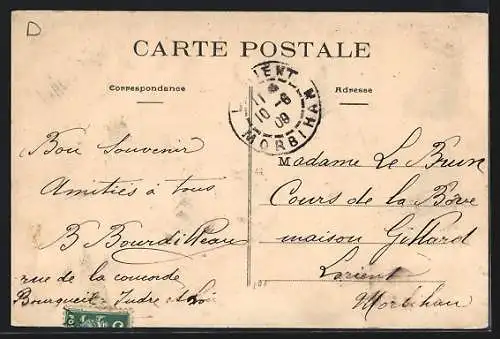 D
CARTE POSTALE
Correspondance
Adresse
LORIENT
11 * 6
10
09
MORBIHAN
Bon Souvenir
Amitiés à tous
B Bourdilleau
rue de la concorde
Bourgueil - Indre & Loire
Madame Le Brun
Cours de la Bove
maison Gillard
Lorient
Morbihan